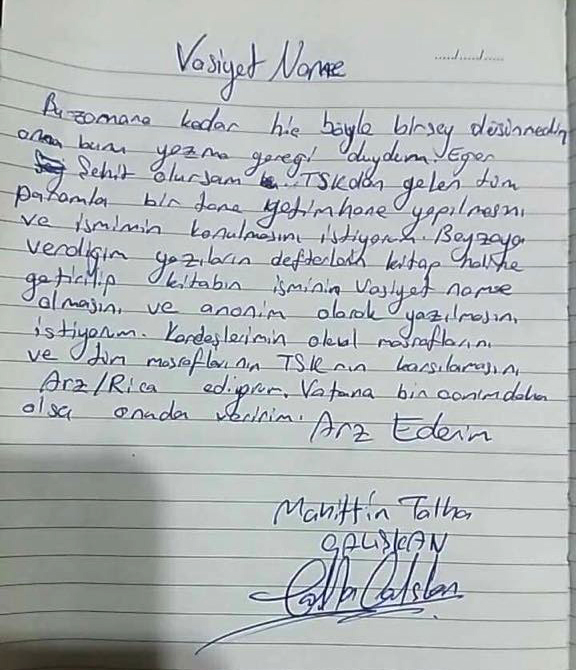 Vasiyet Name
..../..../....
Bu zamana kadar hiç böyle birşey düşünmedim
ama bunu yazma gereği duydum. Eger
Şehit olursam TSKdan gelen tüm
paramla bir tane yetimhane yapılmasını
ve ismimin konulmasını istiyorum. Beyzaya
verdiğim yazıların defterlerin kitap haline
getirilip kitabın isminin Vasiyet name
olmasını ve anonim olarak yazılmasını
istiyorum. Kardeşlerimin okul masraflarını
ve tüm masraflarının TSK nın karşılamasını
Arz/Rica ediyorum. Vatana bin canım daha
olsa onuda veririm. Arz Ederim
Mahittin Talha
ÇALIŞKAN